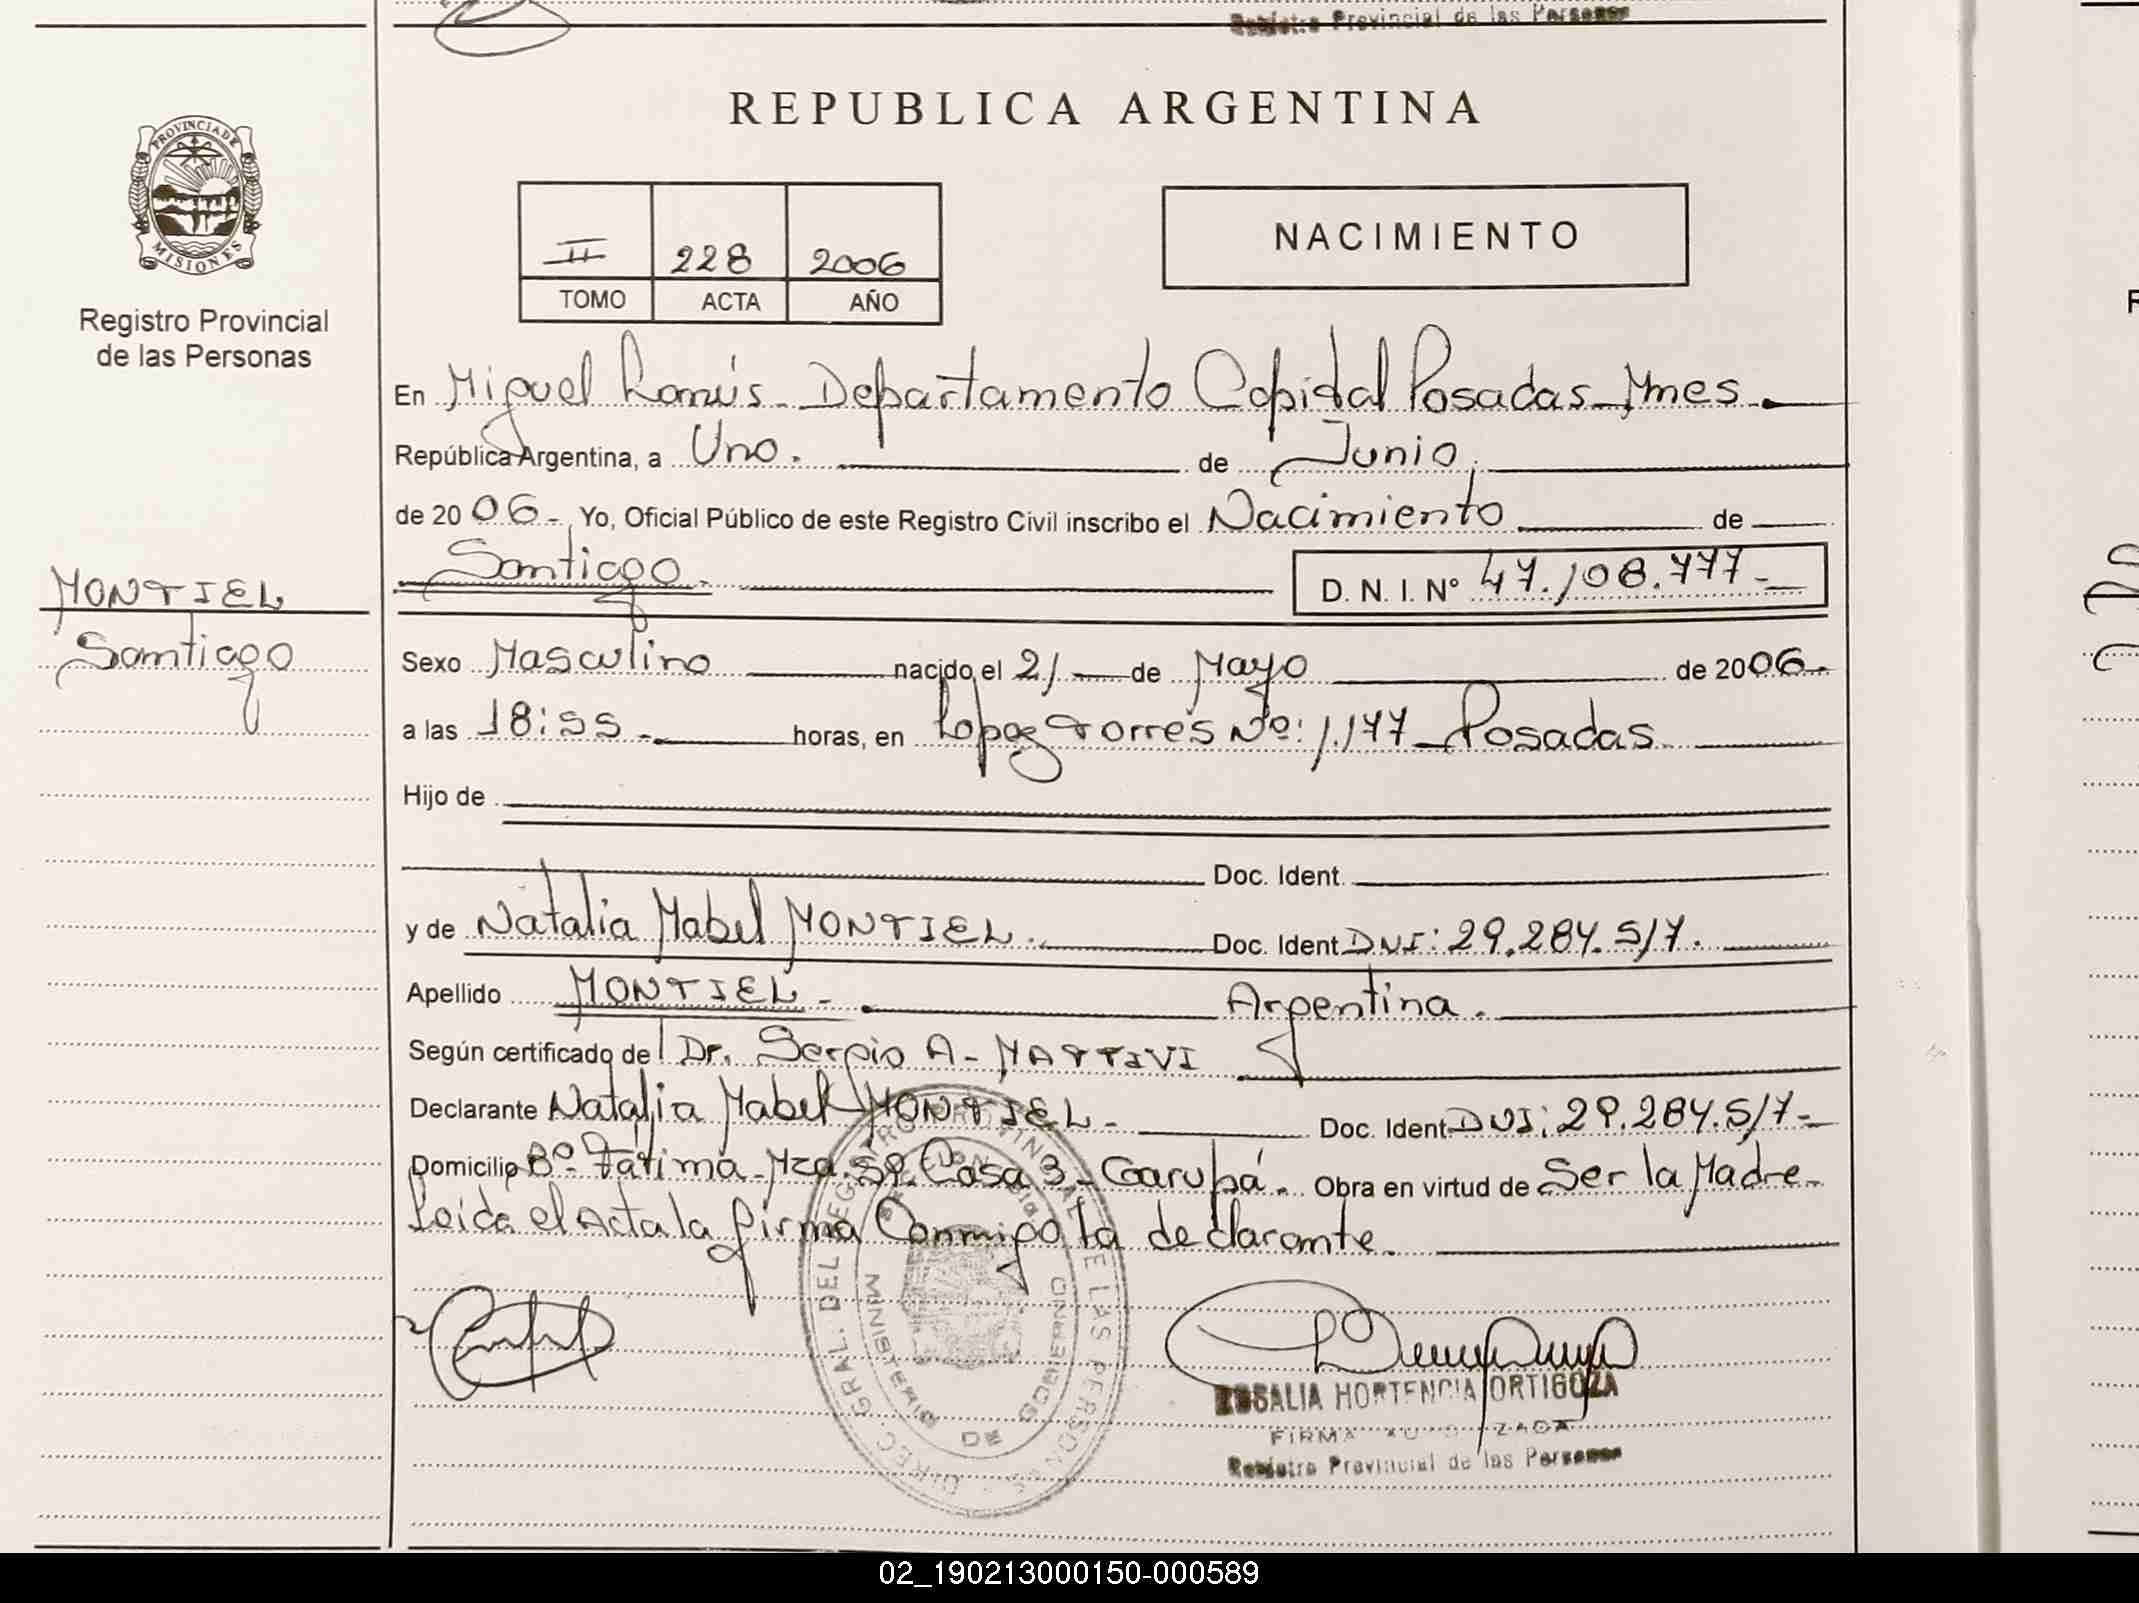 Registro Provincial de las Personas
REPUBLICA ARGENTINA
PROVINCIA DE MISIONES
Registro Provincial
de las Personas
II 228 2006
TOMO ACTA AÑO
NACIMIENTO
En Miguel Lanús - Departamento Capital Posadas - Mnes
República Argentina, a Uno. de Junio
de 2006 - Yo, Oficial Público de este Registro Civil inscribo el Nacimiento de
Santiago. D. N. I. Nº 47.108.777-
MONTIEL
Santiago
Sexo Masculino nacido el 21 de Mayo de 2006-
a las 18:55 - horas, en Lopez Torres Nº: 1.177 - Posadas
Hijo de
Doc. Ident.
y de Natalia Mabel MONTIEL. Doc. Ident. DNI: 29.284.517.
Apellido MONTIEL - Argentina.
Según certificado de Dr. Sergio A-
Declarante Natalia Mabel MONTIEL - Doc. Ident. DNI: 29.284.517-
Domicilio Bº Fátima - Mza. Casa 3 - Garupá. Obra en virtud de Ser la Madre
Leida el Acta la firma Conmigo la declarante.
DIREC. GRAL. DEL REGISTRO PROVINCIAL DE LAS PERSONAS
MINISTERIO DE GOBIERNO
ROSALIA HORTENCIA ORTIGOZA
FIRMA AUTORIZADA
Registro Provincial de las Personas
02_190213000150-000589